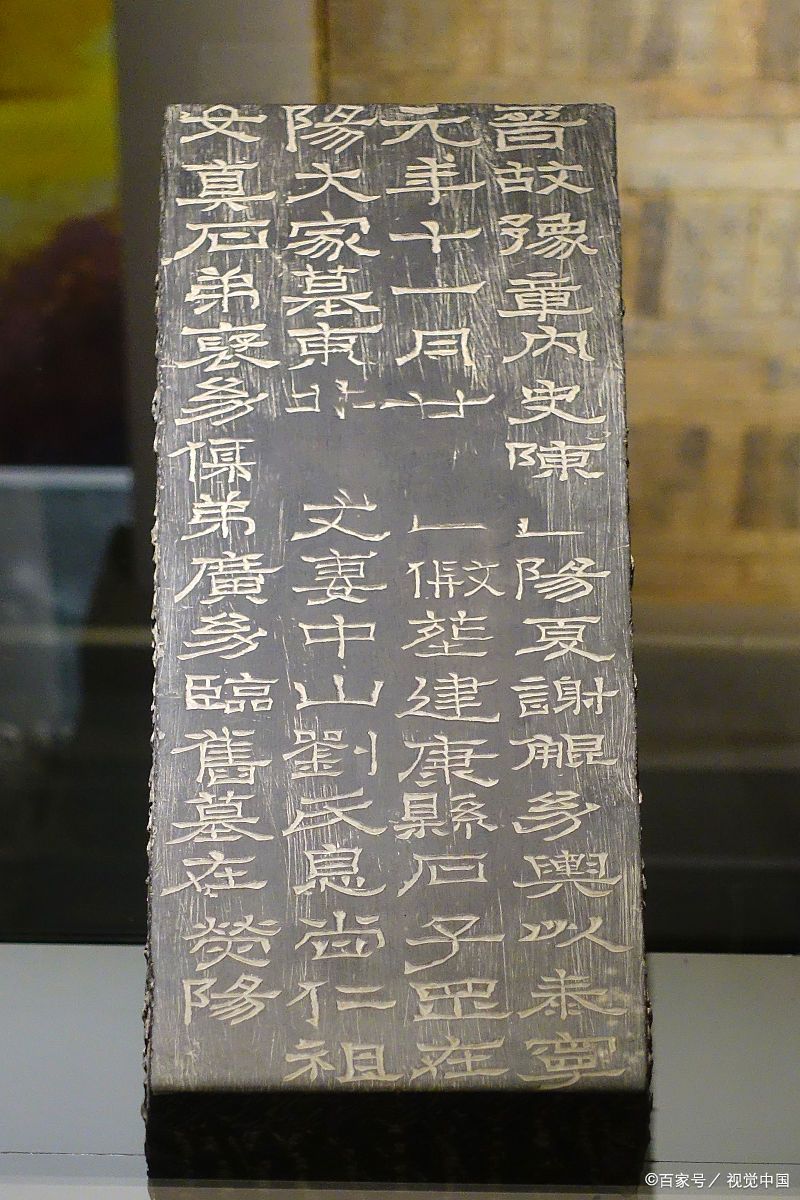 晉故豫章内史陳陽夏謝鯤幼輿以泰寧
元年十一月廿假葬建康縣石子罡在
陽大家墓東北丈妻中山劉氏息尚仁祖
女真石弟裒幼儒弟廣幼臨舊墓在熒陽
©百家号／视觉中国